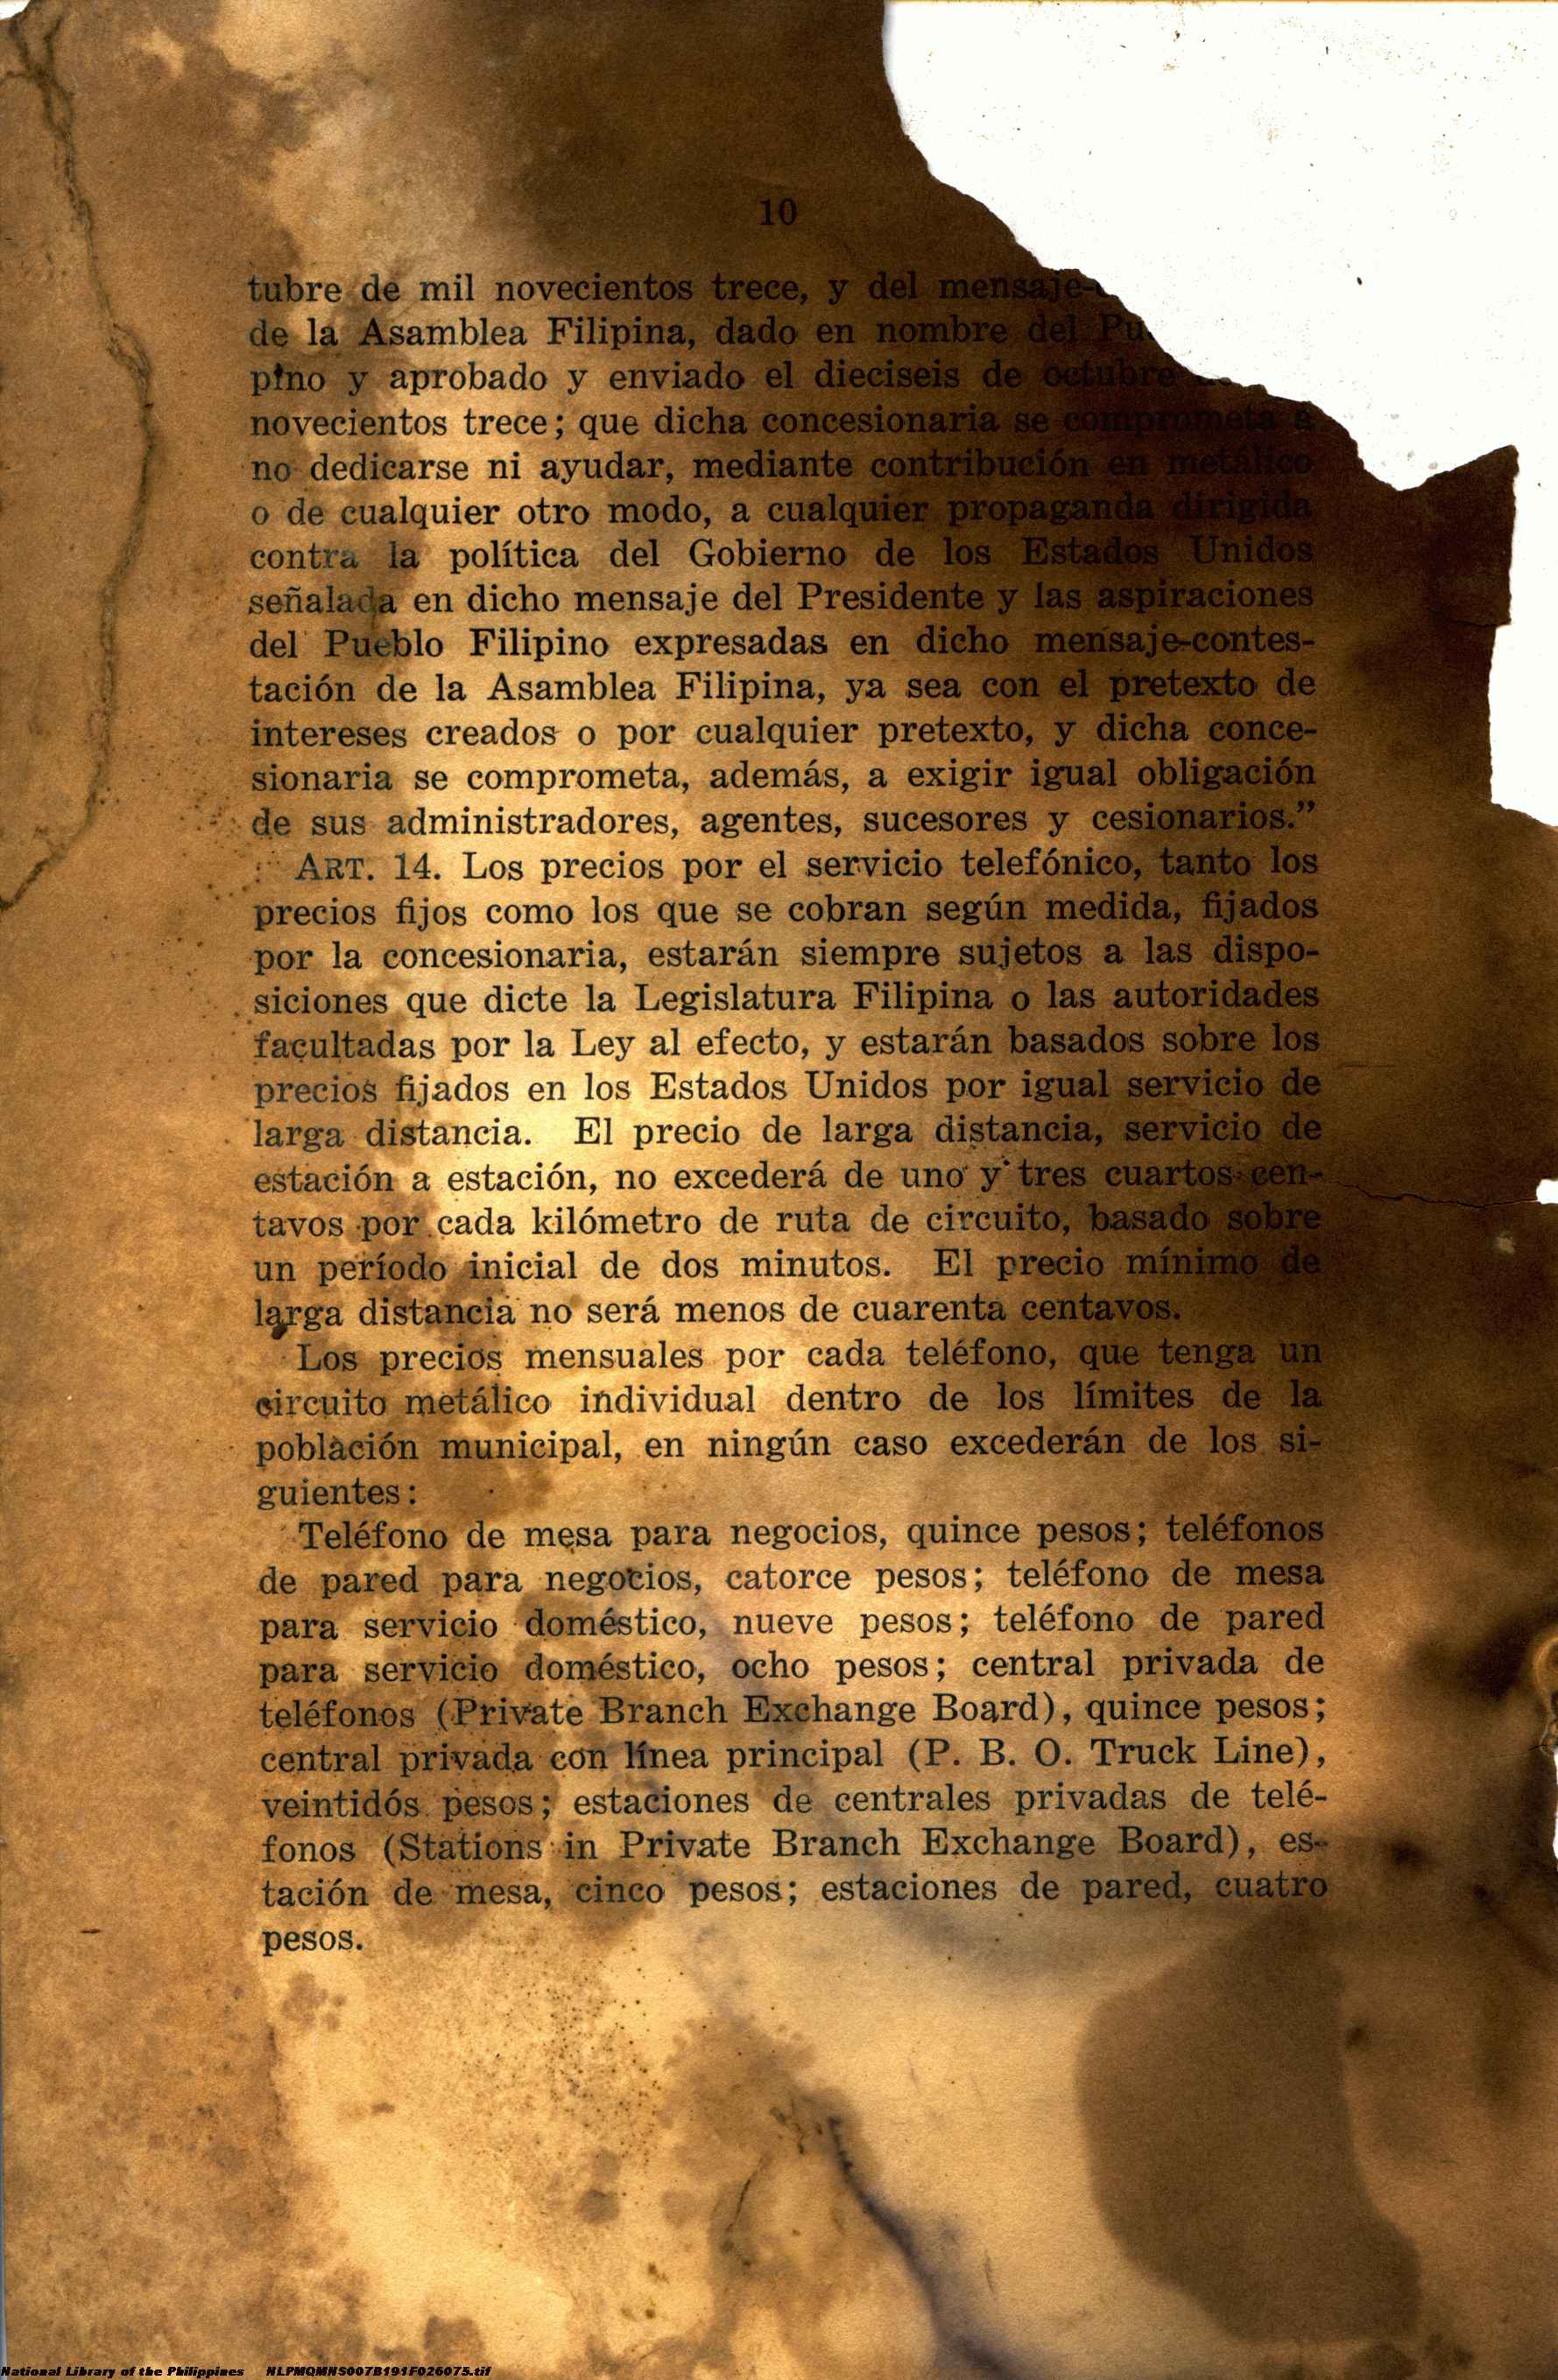 10
tubre de mil novecientos trece, y del
de la Asamblea Filipina, dado en nombre del
pino y aprobado y enviado el dieciseis de octubre
novecientos trece; que dicha concesionaria se comprometa a
no dedicarse ni ayudar, mediante contribución en metálico
o de cualquier otro modo, a cualquier propaganda dirigida
contra la política del Gobierno de los Estados Unidos
señalada en dicho mensaje del Presidente y las aspiraciones
del Pueblo Filipino expresadas en dicho mensaje-contes-
tación de la Asamblea Filipina, ya sea con el pretexto de
intereses creados o por cualquier pretexto, y dicha conce-
sionaria se comprometa, además, a exigir igual obligación
de sus administradores, agentes, sucesores y cesionarios.”
ART. 14. Los precios por el servicio telefónico, tanto los
precios fijos como los que se cobran según medida, fijados
por la concesionaria, estarán siempre sujetos a las dispo-
siciones que dicte la Legislatura Filipina o las autoridades
facultadas por la Ley al efecto, y estarán basados sobre los
precios fijados en los Estados Unidos por igual servicio de
larga distancia. El precio de larga distancia, servicio de
estación a estación, no excederá de uno y tres cuartos cen-
tavos por cada kilómetro de ruta de circuito, basado sobre
un período inicial de dos minutos. El precio mínimo de
larga distancia no será menos de cuarenta centavos.
Los precios mensuales por cada teléfono, que tenga un
circuito metálico individual dentro de los límites de la
población municipal, en ningún caso excederán de los si-
guientes:
Teléfono de mesa para negocios, quince pesos; teléfonos
de pared para negocios, catorce pesos; teléfono de mesa
para servicio doméstico, nueve pesos; teléfono de pared
para servicio doméstico, ocho pesos; central privada de
teléfonos (Private Branch Exchange Board), quince pesos;
central privada con línea principal (P. B. O. Truck Line),
veintidós pesos; estaciones de centrales privadas de telé-
fonos (Stations in Private Branch Exchange Board), es-
tación de mesa, cinco pesos; estaciones de pared, cuatro
pesos.
National Library of the Philippines NLPMQMNS007B191F026075.tif